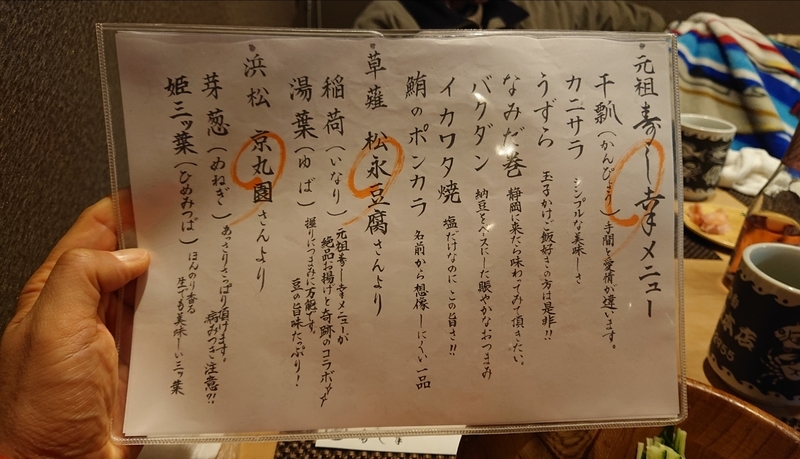 元祖 寿し幸メニュー
干瓢(かんぴょう)手間と愛情が違います。
カニサラ シンプルな美味しさ
うずら 玉子かけご飯好きの方は是非!!
なみだ巻 静岡に来たら味わってみて頂きたい。
バクダン 納豆をベースにした賑やかなおつまみ
イカワタ焼 塩だけなのにこの旨さ!!
鮪のポンカラ 名前から想像しにくい一品
草薙 松永豆腐さんより
稲荷(いなり)元祖寿し幸メニューが
絶品お揚げと奇跡のコラボ
湯葉(ゆば)握りにつまみに万能です。
豆の旨味たっぷり!
浜松 京丸園さんより
芽葱(めねぎ)あっさりさっぱり頂けます。
病みつき注意?!
姫三ッ葉(ひめみつば)ほんのり香る
生でも美味しい三ッ葉